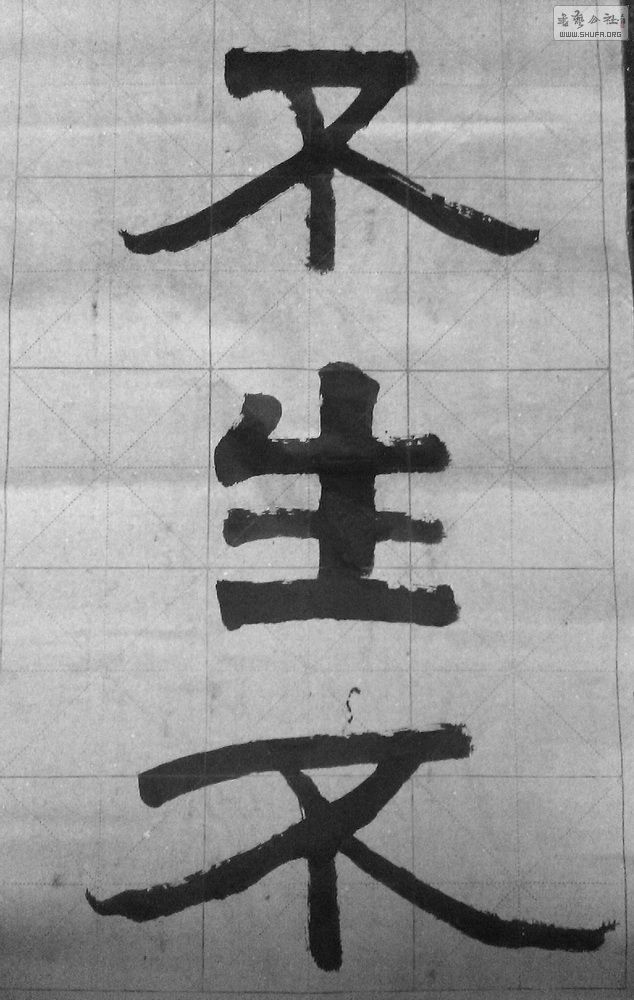 不生不
书艺公社
WWW.SHUFA.ORG